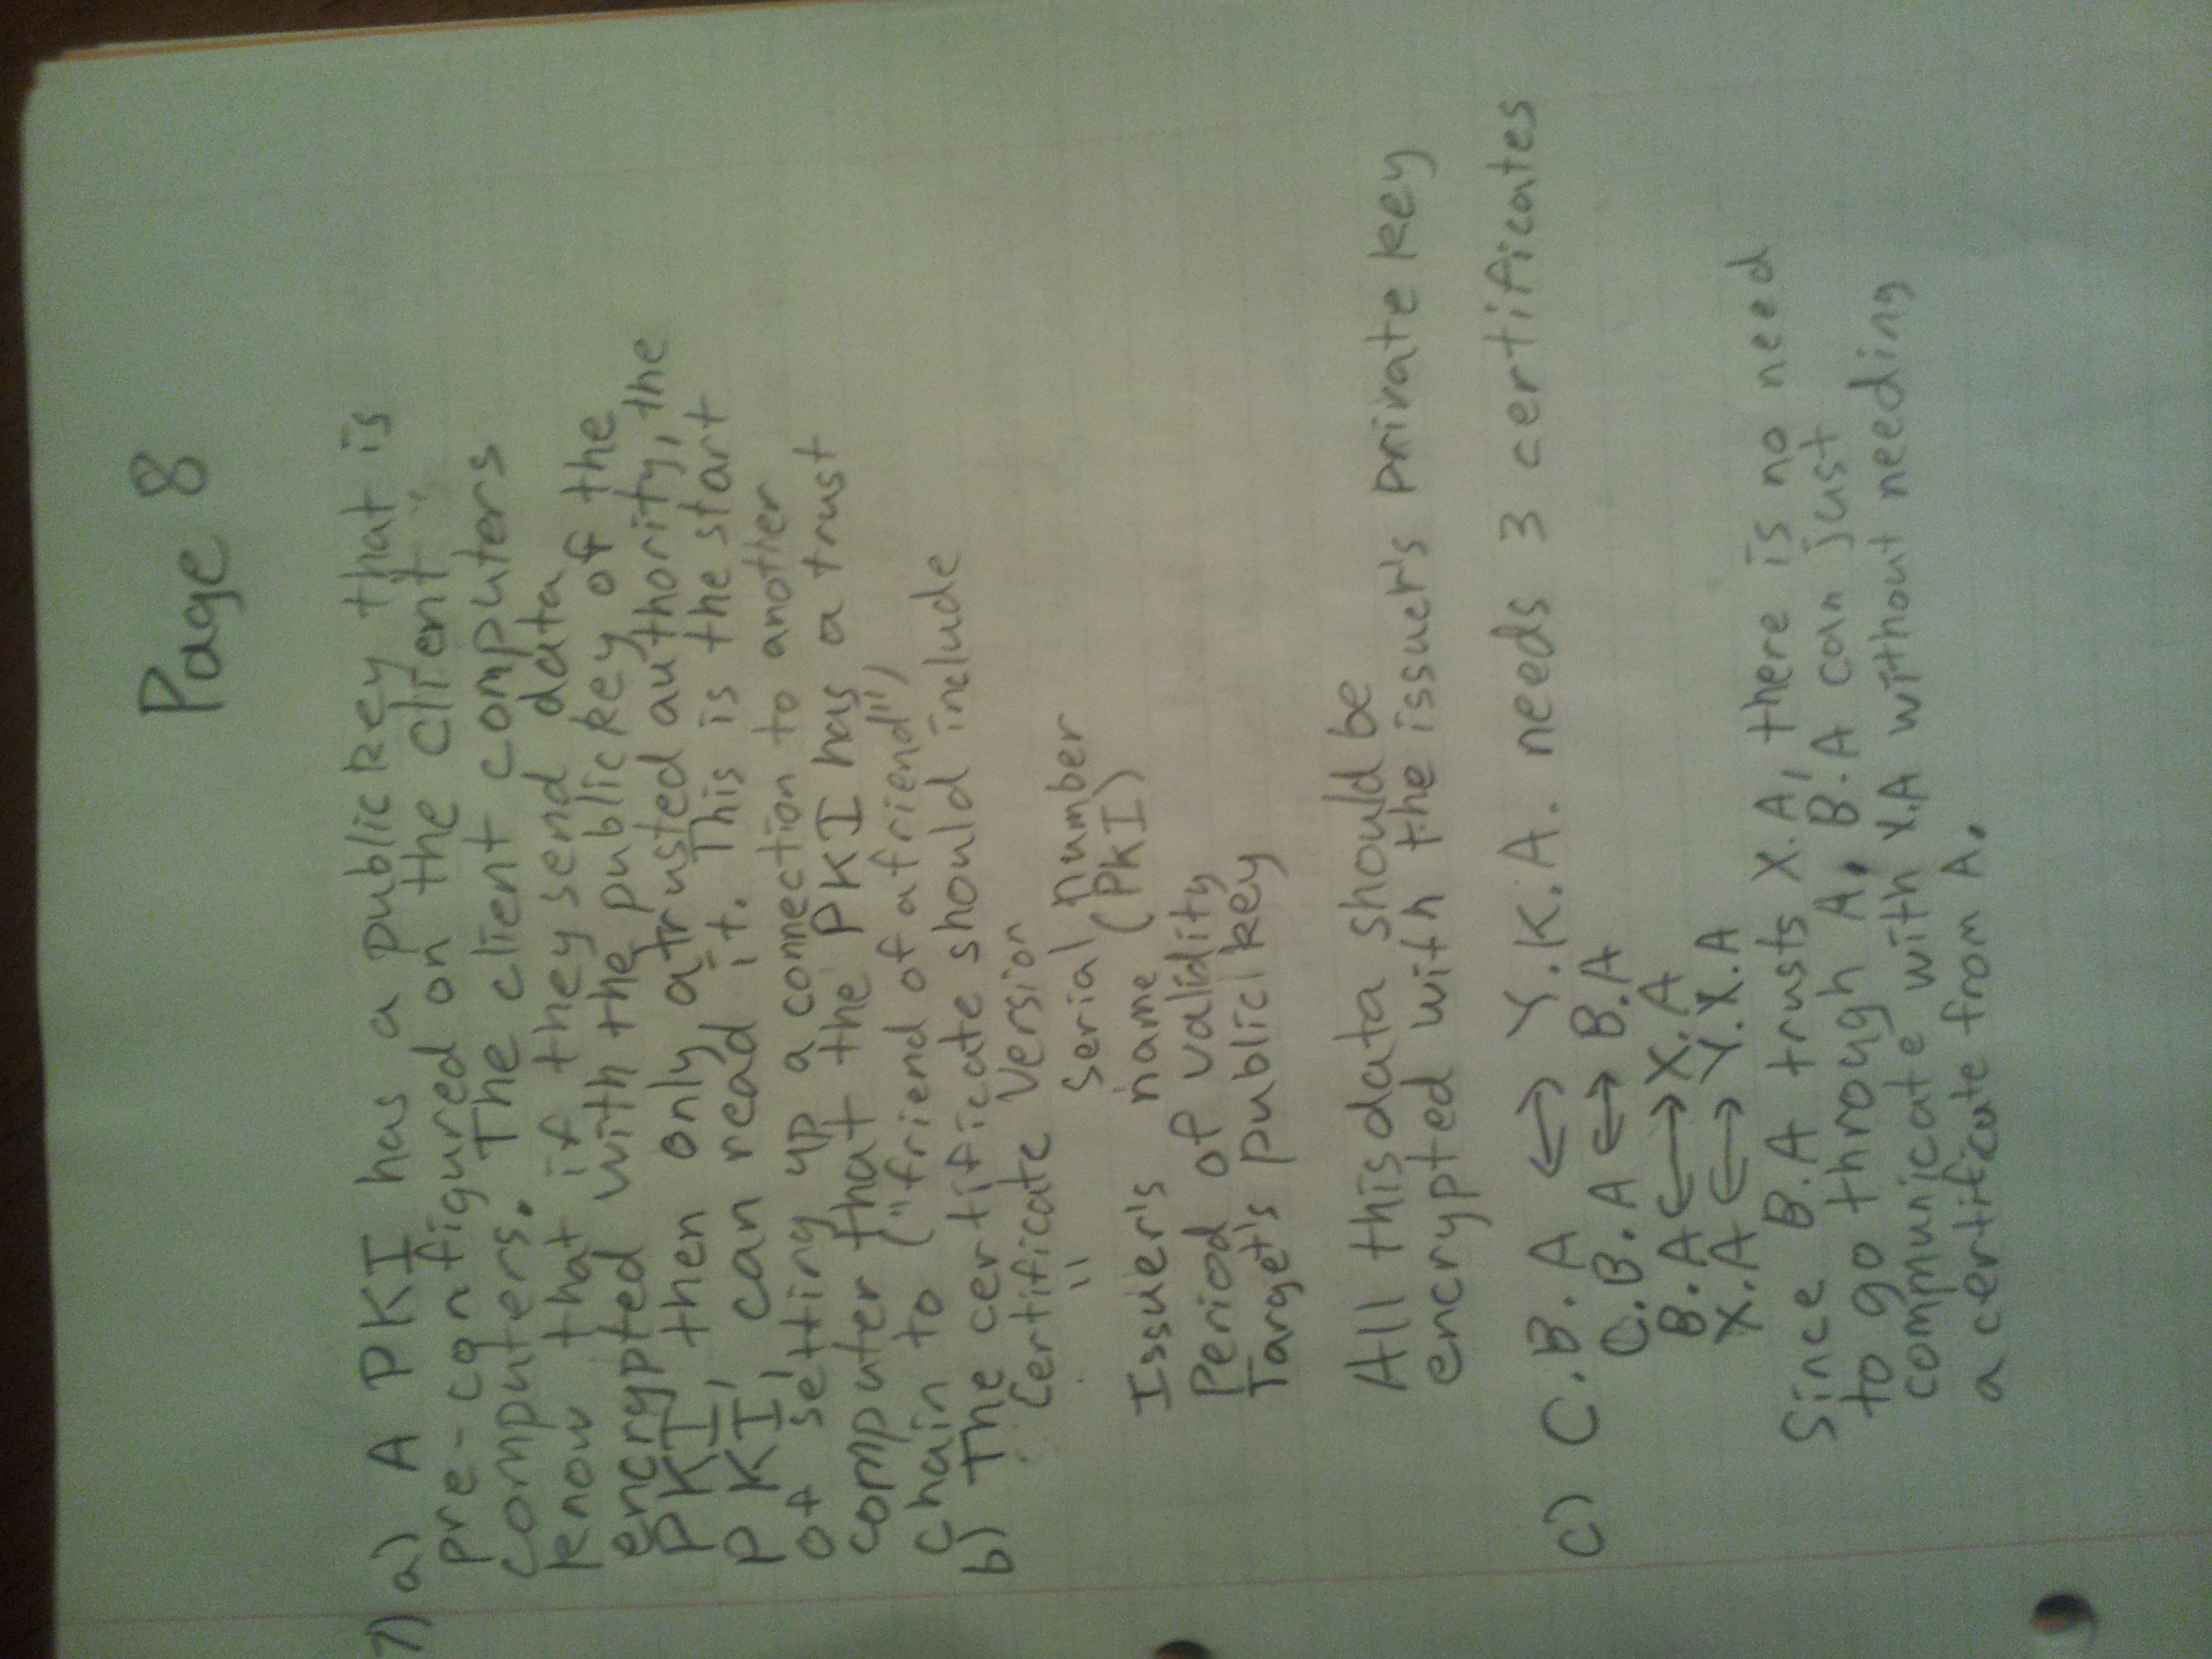 Page 8
7) a) A PKI has a public key that is
pre-configured on the client
computers. The client computers
know that if they send data
encrypted with the public key of the
PKI, then only a trusted authority, the
PKI, can read it. This is the start
of setting up a connection to another
computer that the PKI has a trust
chain to ("friend of a friend")
b) The certificate should include
Certificate Version
" Serial number
Issuer's name (PKI)
Period of validity
Target's public key
All this data should be
encrypted with the issuer's private key
c) C.B.A ↔ Y.K.A. needs 3 certificates
C.B.A ↔ B.A
B.A ↔ X.A
X.A ↔ Y.X.A
Since B.A trusts X.A, there is no need
to go through A. B.A can just
communicate with X.A without needing
a certificate from A.